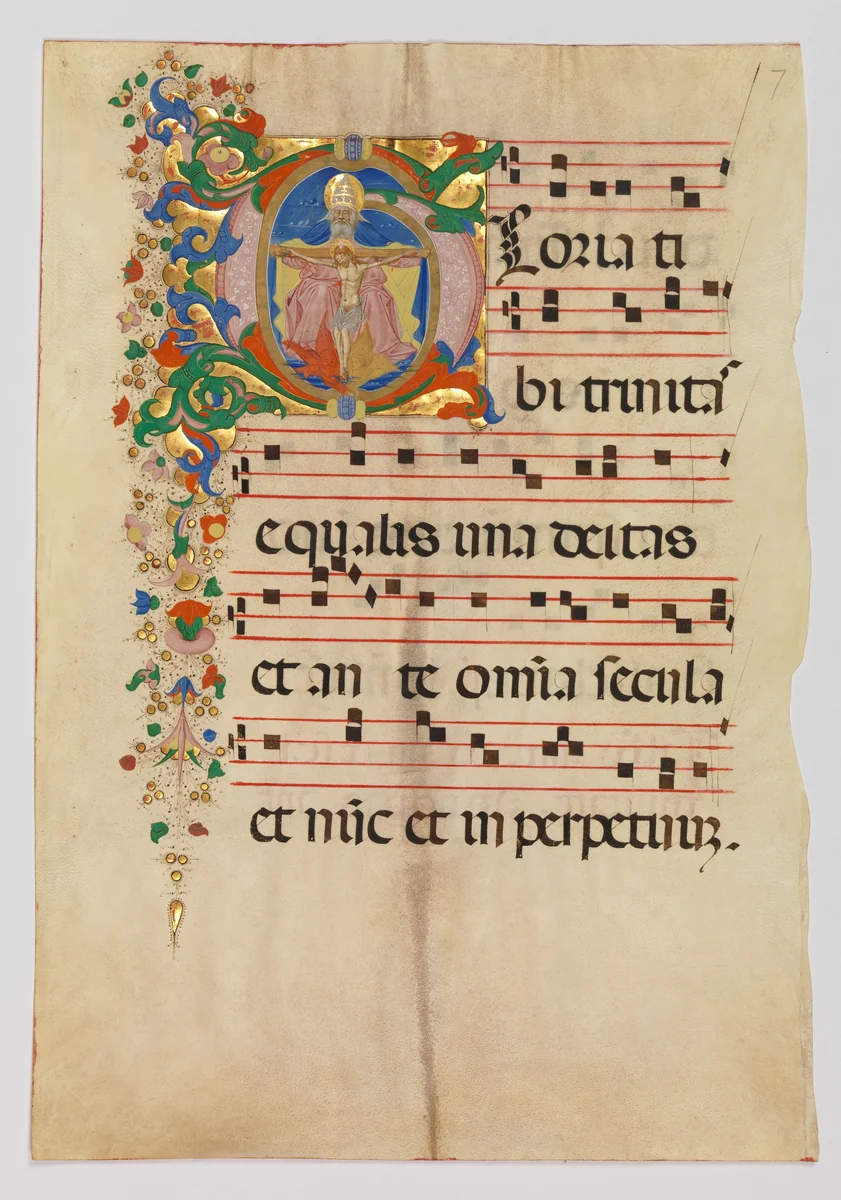 7
Gloria ti
bi trinitas
equalis una deitas
et an te om̃ia secula
et nũc et in perpetuuꝫ.